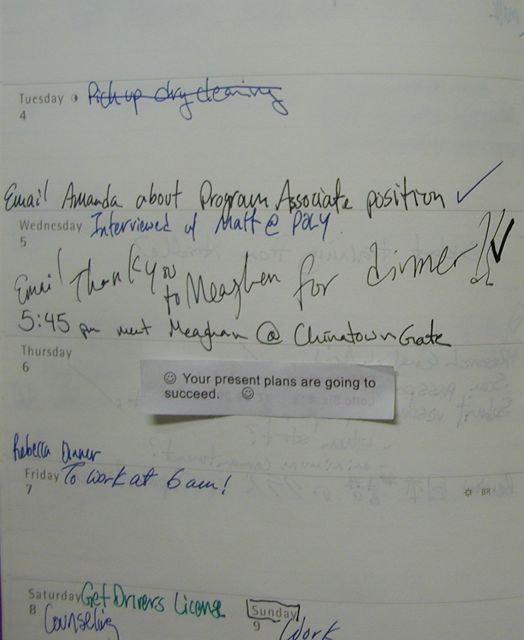 Tuesday Pick up dry cleaning
4
Email Amanda about Program Associate position ✓
Wednesday Interviewed w/ Matt @ PACY
5
Email Thank You to Meaghen for dinner!! ✓
5:45 pm meet Meaghan @ Chinatown Gate
Thursday
6
☺ Your present plans are going to
succeed. ☺
Rebecca Dinner
Friday To work at 6 am!
7
Saturday Get Drivers License
8 Counseling
Sunday
9 Work